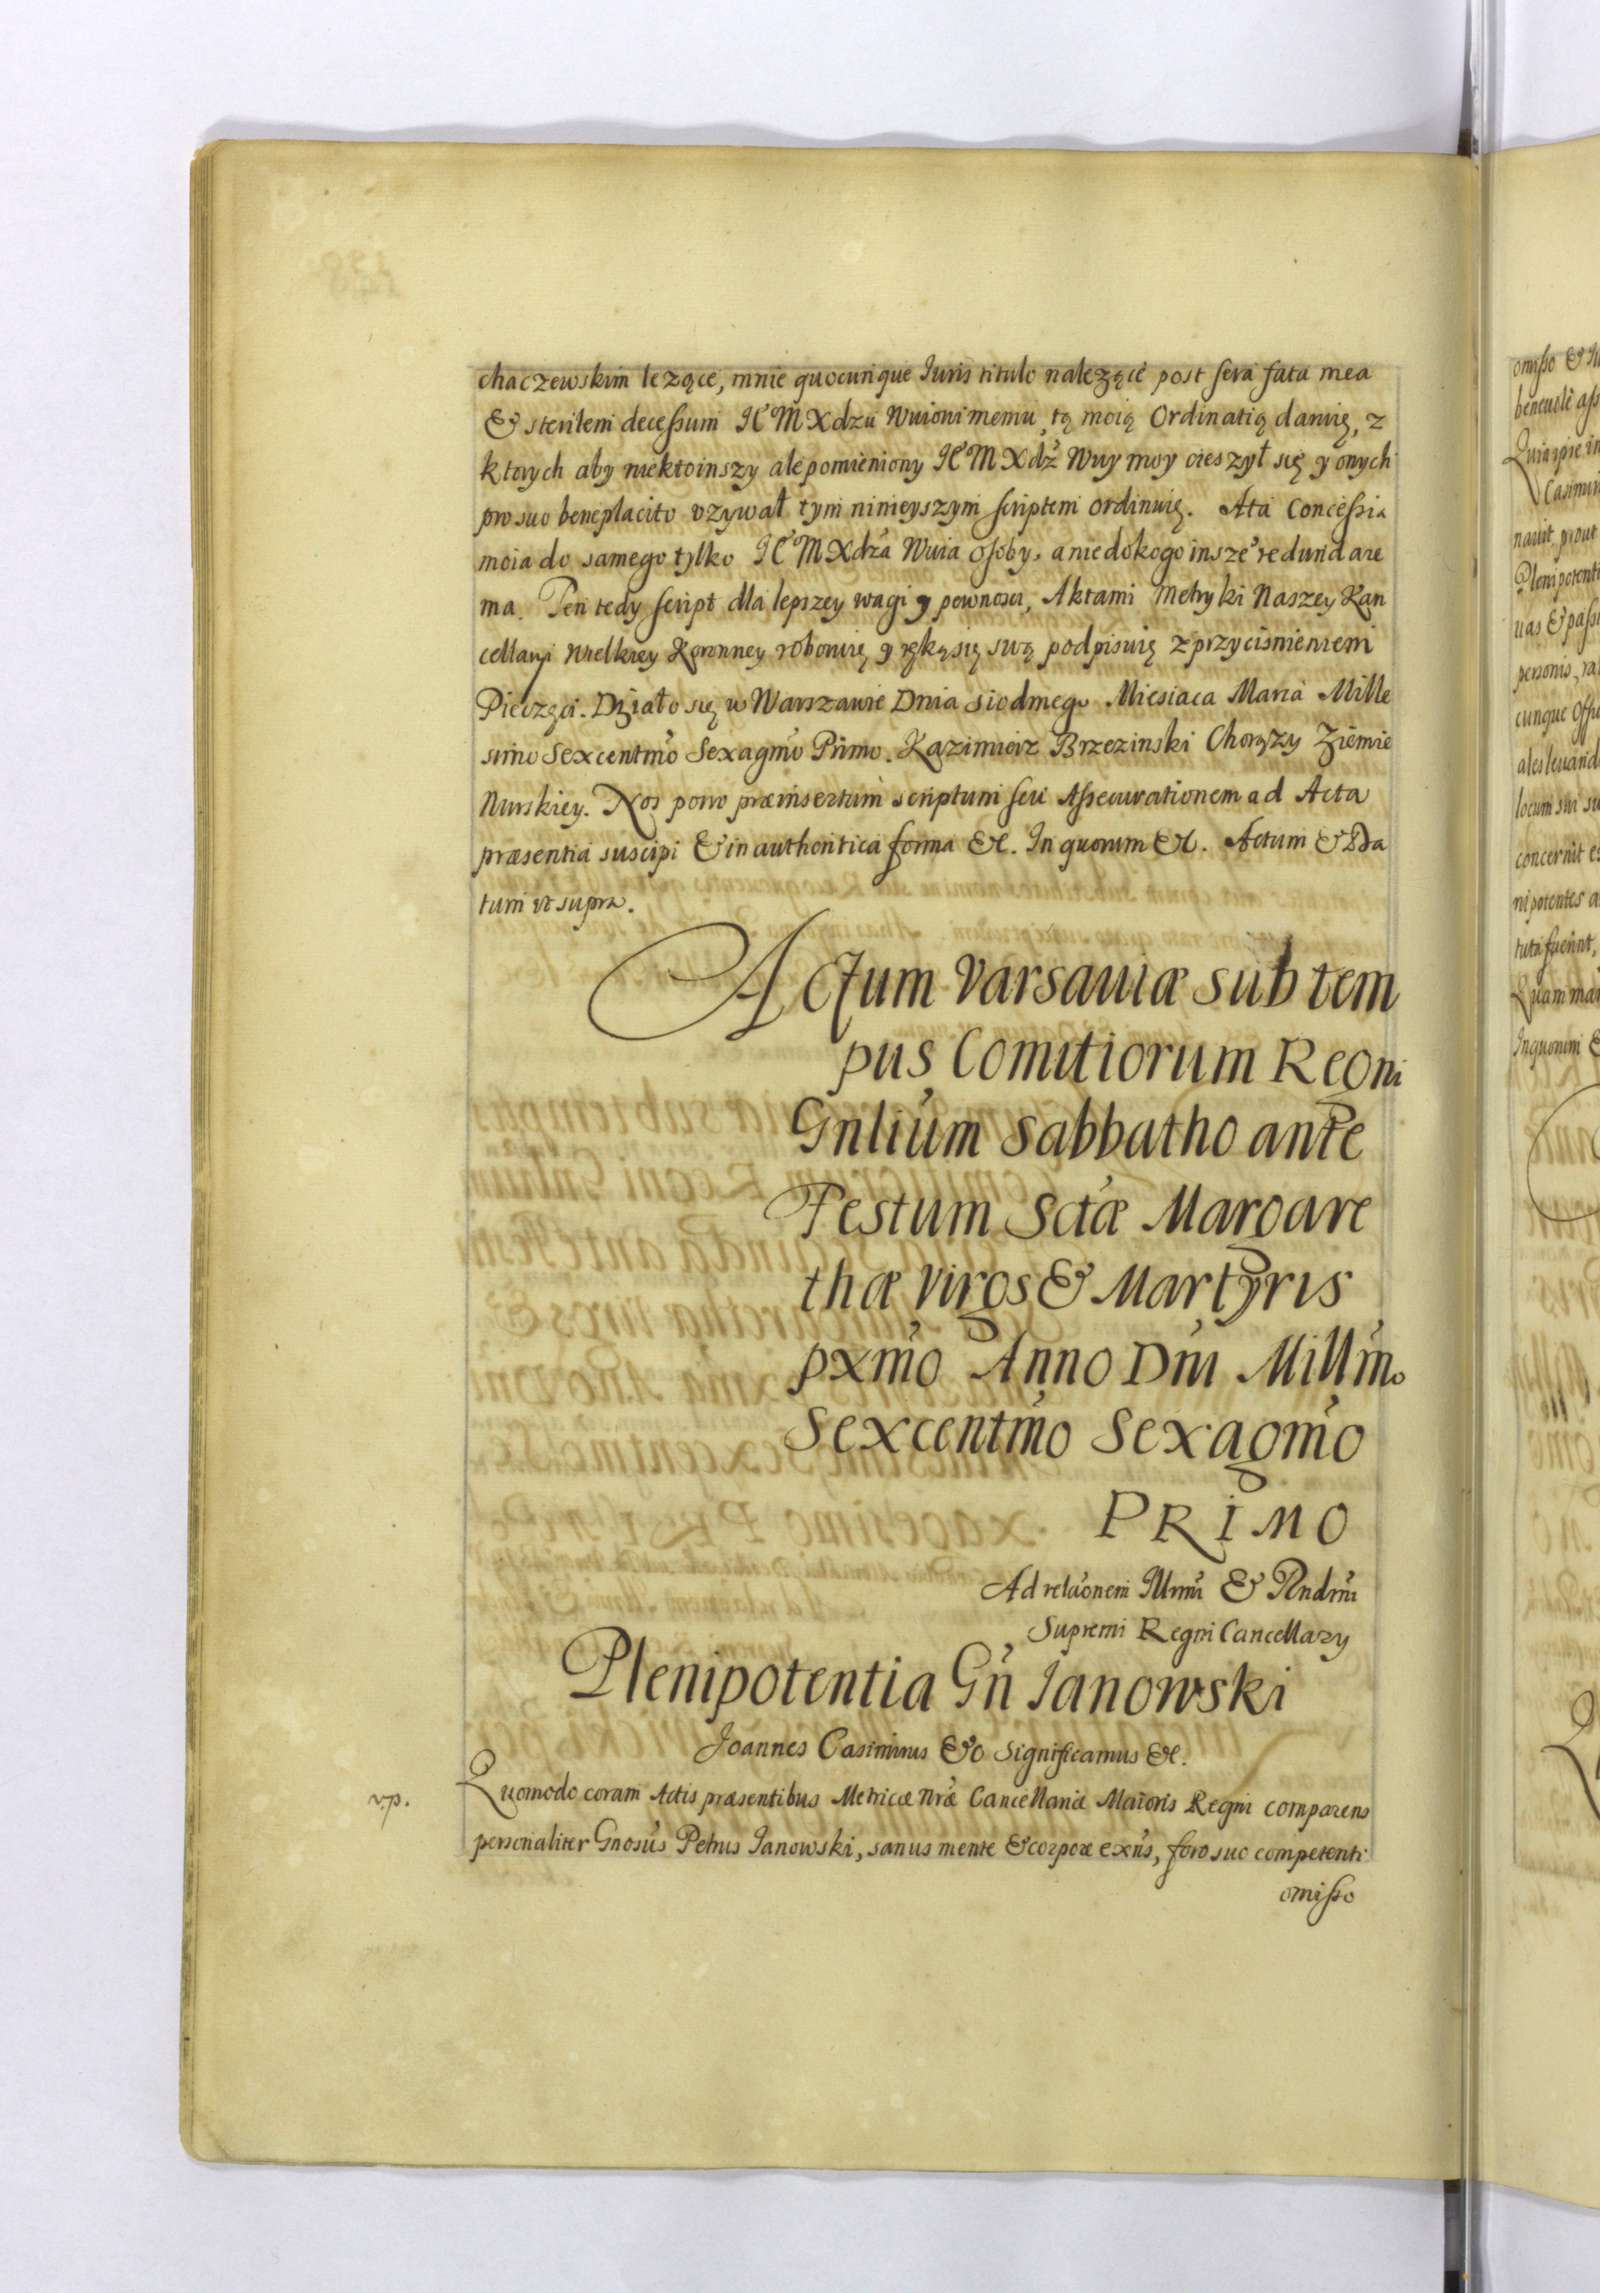 chaczewskim lezące, mnie quocunque Iuris titulo nalezące post sera fata mea
& sterilem decessum JEͤMXdzu Wuiowi memu, tą moią Ordinatią daruię, z
ktorych aby niektoinszy ale pomieniony JEͤMXdź Wuy moy cieszył się y onych
pro suo beneplacito vzywał tym ninieyszym scriptem ordinuię. Ata Concessia
moia do samego tylko JEͤMXdza Wuia osoby, a niedokogo insze° redundare
ma. Ten tedy script dla lepszey wagi y pewnosci, Aktami Metryki Naszey Kan
cellaryi Wielkiey Koronney roboruię y ręką się swą podpisuię z przycisnieniem
Pieczęci. Działo się w Warszawie Dnia siodmego Miesiaca Marca Mille
simo Sexcentmo Sexagmo Primo. Kazimierz Brzezinski Chorązy Ziemie
Nurskiey. Nos porro præinsertum scriptum seu Assecurationem ad Acta
præsentia suscipi & in authentica forma &c. In quorum &c. Actum & Da
tum ut supra.
Actum Varsaviæ sub tem
pus Comitiorum Regni
Gnlium Sabbatho ante
Festum Sctæ Margare
thæ Virgs & Martyris
pxmo Anno Dni Millmo
Sexcentmo Sexagmo
PRIMO
Ad relaonem Illrmi & Rndrmi
Supremi Regni Cancellary
Plenipotentia Gn Ianowski
Joannes Casimirus &c Significamus &c.
v.p.
Quomodo coram Actis præsentibus Metricæ Nræ Cancellariæ Maioris Regni comparens
personaliter Gnosus Petrus Ianowski, sanus mente & corpore exns, foro suo competenti
omisso